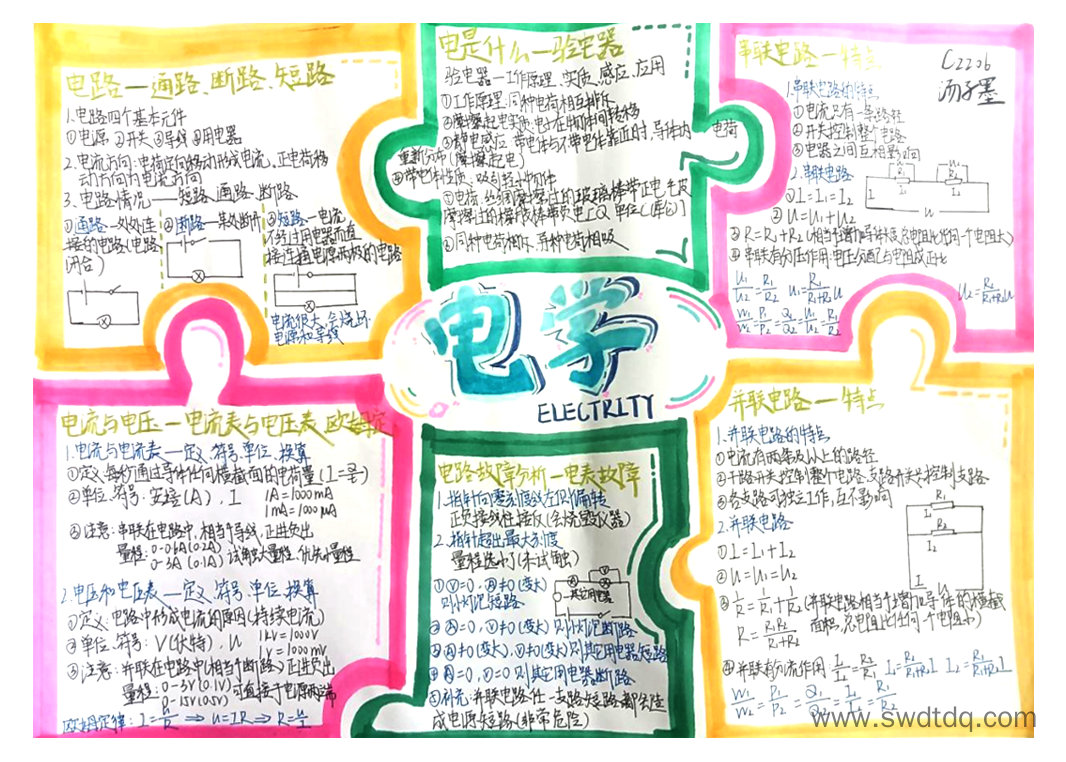 电路—通路、断路、短路
1.电路四个基本元件
①电源 ②开关 ③导线 ④用电器
2.电流方向:电荷定向移动形成电流,正电荷移
动方向为电流方向
3.电路情况——短路、通路、断路
①通路—处处连
接的电路(电路
闭合)
②断路—某处断开
③短路—电流
不经过用电器而直
接连通电源两极的电路
电流很大,会烧坏
电源和导线
电是什么—验电器
验电器—工作原理、实质、感应、应用
①工作原理:同种电荷相互排斥
②摩擦起电实质:电子在物体间转移
③静电感应:带电体与不带电体靠近时,导体内 电荷
重新分布(摩擦起电)
④带电体性质:吸引轻小物体
①同种电荷相斥、异种电荷相吸
串联电路—特点
C2206
汤子墨
1.串联电路的特点
①电流只有一条路径
②开关控制整个电路
③电器之间互相影响
2.串联电路
①I=I₁=I₂
②U=U₁+U₂
③R=R₁+R₂(相当于增加导体长度,总电阻比任何一个电阻大)
④串联有分压作用:电压分配与电阻成正比
U₁/U₂=R₁/R₂ U₁=R₁/(R₁+R₂)U U₂=R₂/(R₁+R₂)U
W₁/W₂=P₁/P₂=Q₁/Q₂=U₁/U₂=R₁/R₂
R₁ R₂
I
U
电学
ELECTRITY
电流与电压—电流表与电压表 欧姆定
1.电流与电流表—定义、符号、单位、换算
①定义:每秒通过导体任何横截面的电荷量(I=Q/t)
②单位、符号:安培(A)、I 1A=1000mA
1mA=1000μA
③注意:串联在电路中,相当于导线,正进负出
量程:0-0.6A(0.02A)
0-3A(0.1A)
2.电压和电压表—定义、符号、单位、换算
①定义:电路中形成电流的原因(持续电流)
②单位、符号:V(伏特)、U 1kV=1000V
1V=1000mV
③注意:并联在电路中(相当于断路)正进负出
量程:0-3V(0.1V)
0-15V(0.5V) 可直接于电源两端
欧姆定律:I=U/R⇒U=IR⇒R=U/I
电路故障分析—电表故障
1.指针向零刻度线左侧偏转
正负接线柱接反(会烧毁仪器)
2.指针超出最大刻度
量程选小了(未试触)
①V=0,A≠0(变大)
则小灯泡短路
②A=0,V≠0(变大)则小灯泡断路
③A≠0(变大),V≠0(变大)则其它用电器短路
④A=0,V=0则其它用电器断路
⑤补充:并联电路任一支路短路都会造
成电源短路(非常危险)
其它用电器
并联电路—特点
1.并联电路的特点
①电流有两条及以上的路径
②干路开关控制整个电路、支路开关只控制支路
③各支路可独立工作,互不影响
2.并联电路
①I=I₁+I₂
②U=U₁=U₂
③1/R=1/R₁+1/R₂(并联电路相当于增加导体的横截
面积,总电阻比任何一个电阻小)
R=R₁R₂/(R₁+R₂)
R₁
I₁
R₂
I₂
I
U
www.swdtdq.com